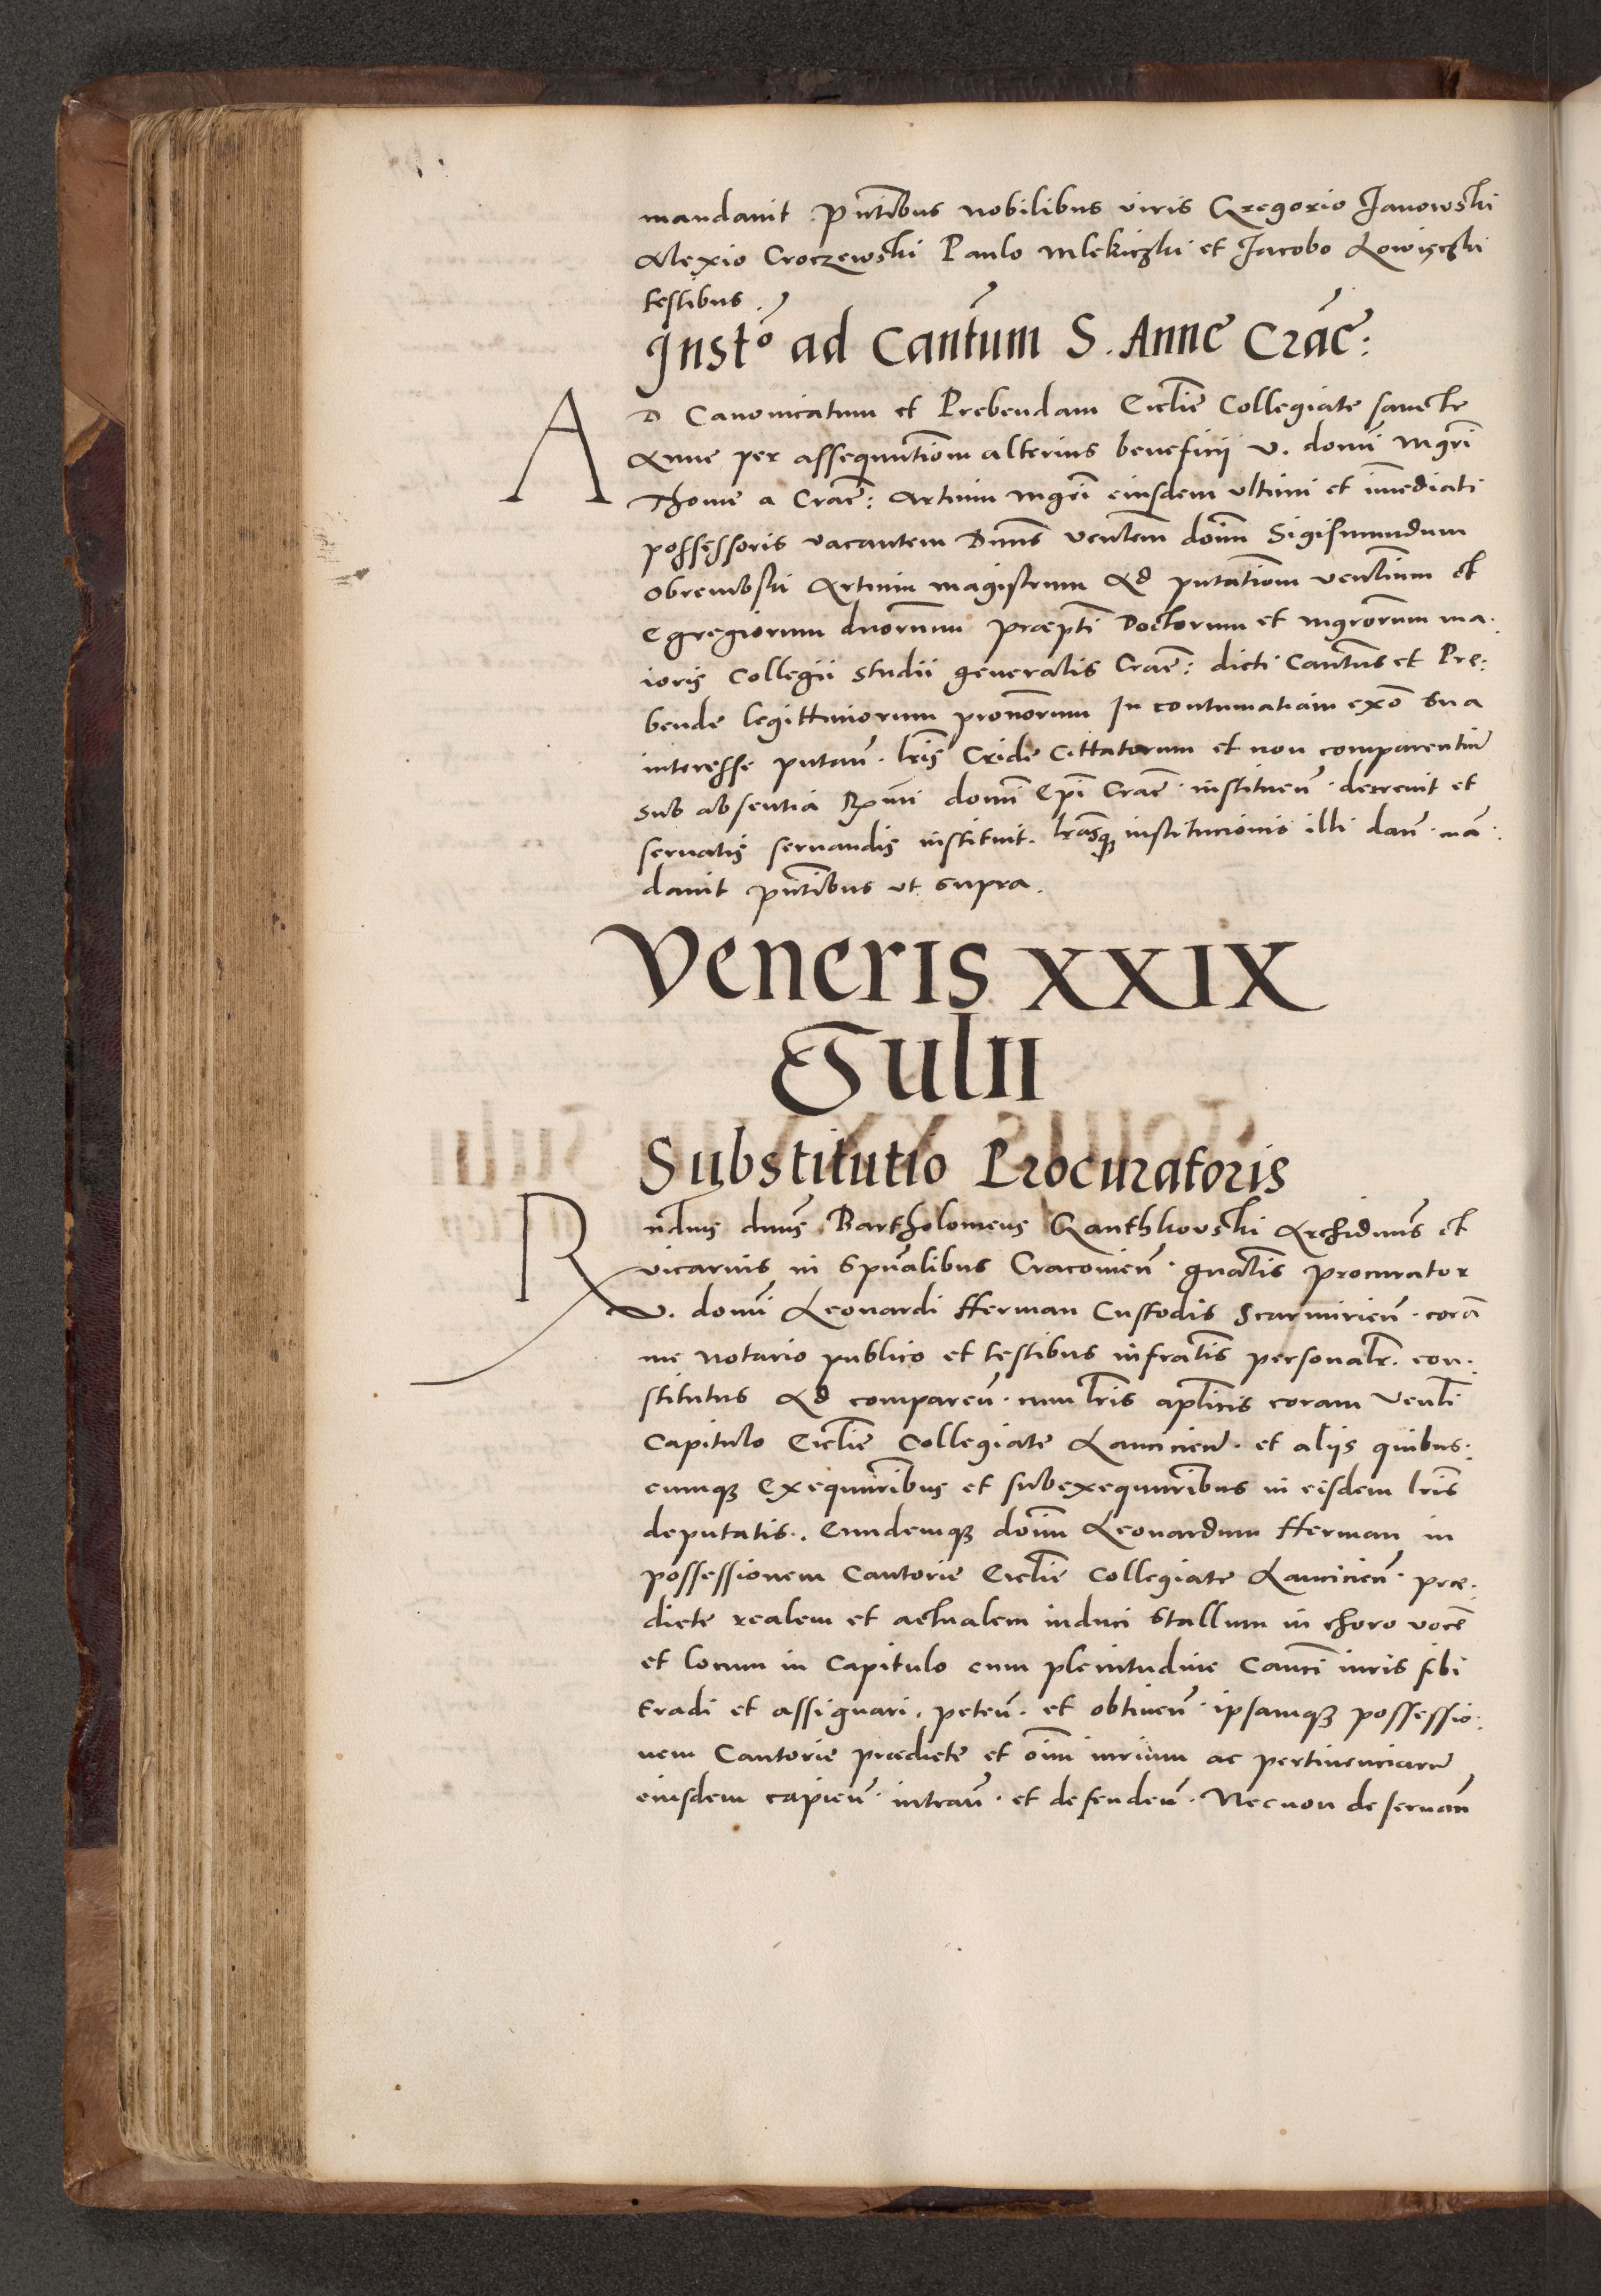 mandauit p̃ntibus nobilibus viris Gregorio Janowski
Alexio Croczewski Paulo Mlekiczki et Jacobo Lowięczki
testibus.
Instõ ad Cant̃um S. Anne Crac̃:
AD Canonicatum et Prebendam Ecc̃lie Collegiate sancte
Anne per assequut̃iom alterius beneficij V. domĩ mgr̃i
Thome a Crac̃: Artium mgr̃i eiusdem vltimi et im̃ediati
possessoris vacantem Dn̄us ven̄lem doim̃ Sigismundum
Obrembski Artium magistrum Ad pn̄tat̃iom ven̄lium et
Egregiorum dnorum præpt̃i Doctorum et mgr̃orum ma-
ioris Collegii studii generalis Crac̃: dicti Cant̃us et Pre:
bende legittimorum pr̃onorum In contumatiam exõ sua
interesse putañ. lr̃is Cride Cittatorum et non comparentiũ
sub absentia Rx̃mi domĩ Ep̃i Crac̃. instituen̄. decreuit et
seruatis seruandis instituit. lr̃asq̃ institucionis illi dañ. mã
dauit p̃ntibus vt supra.
Veneris XXIX
Iulii
Substitutio Procuratoris
Rn̄dus dn̄us Bartholomeus Ganthkovski Archidn̄us et
vicarius in Spn̄alibus Cracouien̄. gn̄alis procurator
V. domĩ Leonardi Herman Custodis Scarmirien̄. corã
me notario publico et testibus infrat̃is personalr̃. con:
stitutus Ad comparen̄. cum lr̃is aplicis coram ven̄li
Capitulo Ecc̃lie Collegiate Lancicien̄. et aliis quibus:
cumq̃ Exequutoribus et subexequutoribus in eisdem lr̃is
deputatis. Eundemq̃ doim̃ Leonardum Herman in
possessionem Cantorie Ecc̃lie Collegiate Lancicien̄. præ:
dicte realem et actualem induci Stallum in choro vocẽ
et locum in Capitulo cum plenitudine Can̄ci iuris sibi
tradi et assignari. peten̄. et obtinen̄. ipsamq̃ possessio:
nem Cantorie prædicte et oĩm iurium ac pertinenciarũ
eiusdem capien̄. intrañ. et defenden̄. Necnon deseruañ